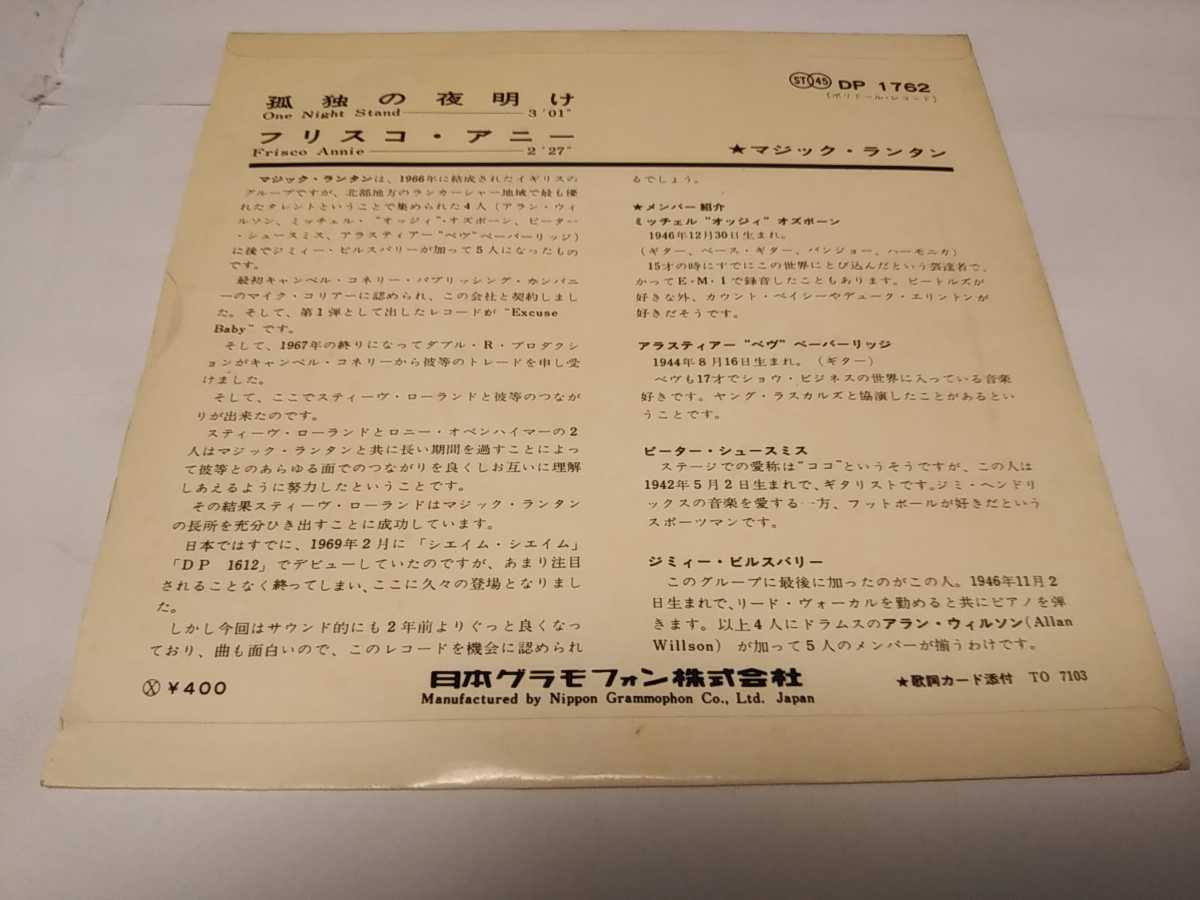 孤独の夜明け
One Night Stand 3'01"
フリスコ・アニー
Frisco Annie 2'27"
ST 45 DP 1762
(ポリドール・レコード)
★マジック・ランタン
マジック・ランタンは、1966年に結成されたイギリスの
グループですが、北部地方のランカーシャー地域で最も優
れたタレントということで集められた4人(アラン・ウィ
ルソン、ミッチェル・"オッジィ"・オズボーン、ピーター
・シュースミス、アラスティアー"ベヴ"ベーバーリッジ)
に後でジミィー・ビルスバリーが加って5人になったもの
です。
最初キャンベル・コネリー・パブリッシング・カンパニ
ーのマイク・コリアーに認められ、この会社と契約しまし
た。そして、第1弾として出したレコードが"Excuse
Baby"です。
そして、1967年の終りになってダブル・R・プロダクシ
ョンがキャンベル・コネリーから彼等のトレードを申し受
けました。
そして、ここでスティーヴ・ローランドと彼等のつなが
りが出来たのです。
スティーヴ・ローランドとロニー・オペンハイマーの2
人はマジック・ランタンと共に長い期間を過すことによっ
て彼等とのあらゆる面でのつながりを良くしお互いに理解
しあえるように努力したということです。
その結果スティーヴ・ローランドはマジック・ランタン
の長所を充分ひき出すことに成功しています。
日本ではすでに、1969年2月に「シエイム・シエイム」
「DP 1612」でデビューしていたのですが、あまり注目
されることなく終ってしまい、ここに久々の登場となりまし
た。
しかし今回はサウンド的にも2年前よりぐっと良くなっ
ており、曲も面白いので、このレコードを機会に認められ
るでしょう。
★メンバー紹介
ミッチェル"オッジィ"オズボーン
1946年12月30日生まれ。
(ギター、ベース・ギター、バンジョー、ハーモニカ)
15才の時にすでにこの世界にとび込んだという芸達者で、
かってE・M・Iで録音したこともあります。ビートルズが
好きな外、カウント・ベイシーやデューク・エリントンが
好きだそうです。
アラスティアー"ベヴ"ベーバーリッジ
1944年8月16日生まれ。(ギター)
ベヴも17才でショウ・ビジネスの世界に入っている音楽
好きです。ヤング・ラスカルズと協演したことがあるとい
うことです。
ピーター・シュースミス
ステージでの愛称は"ココ"というそうですが、この人は
1942年5月2日生まれで、ギタリストです。ジミ・ヘンドリ
ックスの音楽を愛する一方、フットボールが好きだという
スポーツマンです。
ジミィー・ビルスバリー
このグループに最後に加ったのがこの人。1946年11月2
日生まれで、リード・ヴォーカルを勤めると共にピアノを弾
きます。以上4人にドラムスのアラン・ウィルソン(Allan
Willson)が加って5人のメンバーが揃うわけです。
Ⓧ ¥400
日本グラモフォン株式会社
Manufactured by Nippon Grammophon Co., Ltd. Japan
★歌詞カード添付 TO 7103